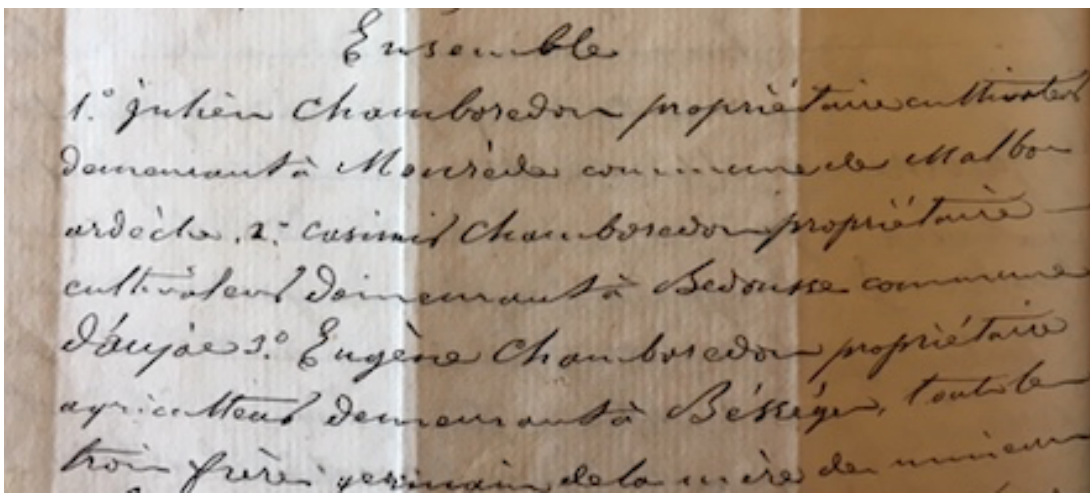 Ensemble
1.° julien Chamboredon propriétaire cultivateur
demeurant à commune de Malbon
ardèche, 2.° casimir Chamboredon propriétaire
cultivateur demeurant à Bedousse commune
d'aujac 3.° Eugène Chamboredon propriétaire
agriculteur demeurant à Béssèges, tout le
trois frères germain de la mère des mineurs